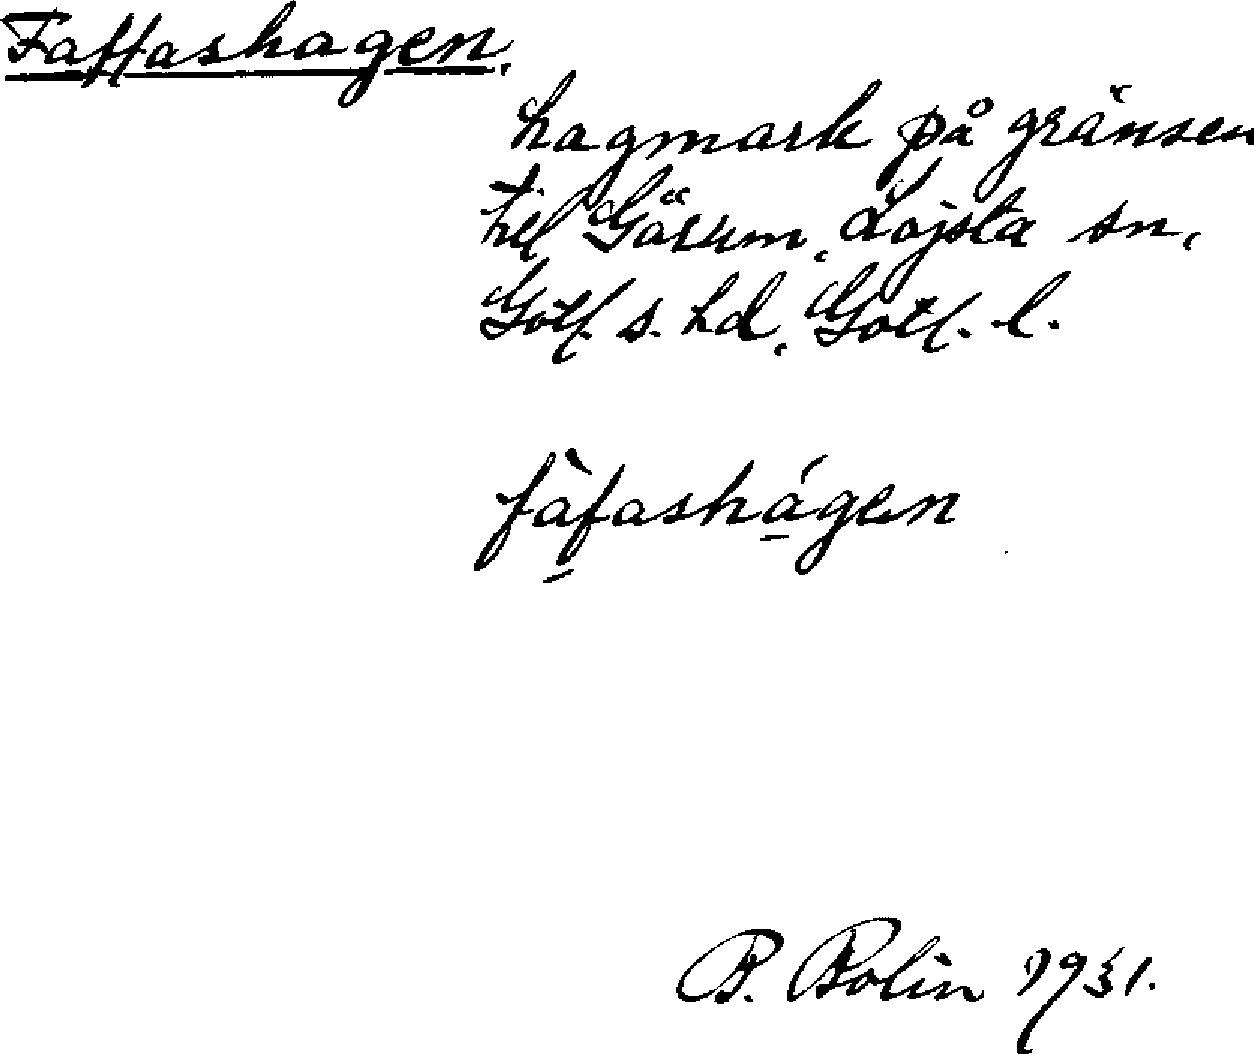 Faffashagen.
hagmark på gränsen
till Gärum, Lojsta sn,
Gotl. s. hd, Gotl. l.
fàfashágen
B. Bolin 1931.